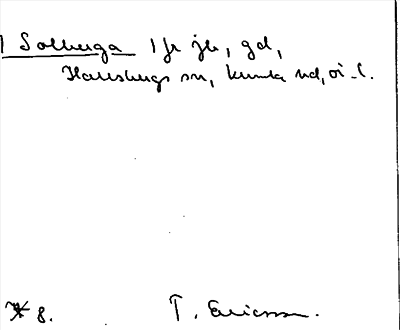 Solberga 1 fr jb, gd,
Hallsbergs sn, Kumla hd, ö. l.
8. T. Ericsson.